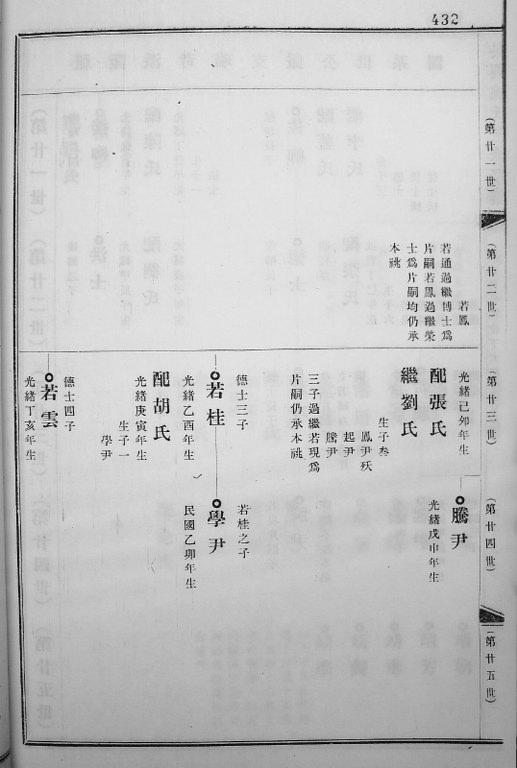 432
(第廿一世)
(第廿二世)
(第廿三世)
(第廿四世)
(第廿五世)
若鳳
若通過繼博士爲
片嗣若鳳過繼榮
士爲片嗣均仍承
本祧
光緒己卯年生
配張氏
繼劉氏
生子叁
鳳尹殀
起尹
騰尹
三子過繼若現爲
片嗣仍承本祧
騰尹
光緒戊申年生
德士三子
若桂
光緒乙酉年生
配胡氏
光緒庚寅年生
生子一
學尹
若桂之子
學尹
民國乙卯年生
德士四子
若雲
光緒丁亥年生